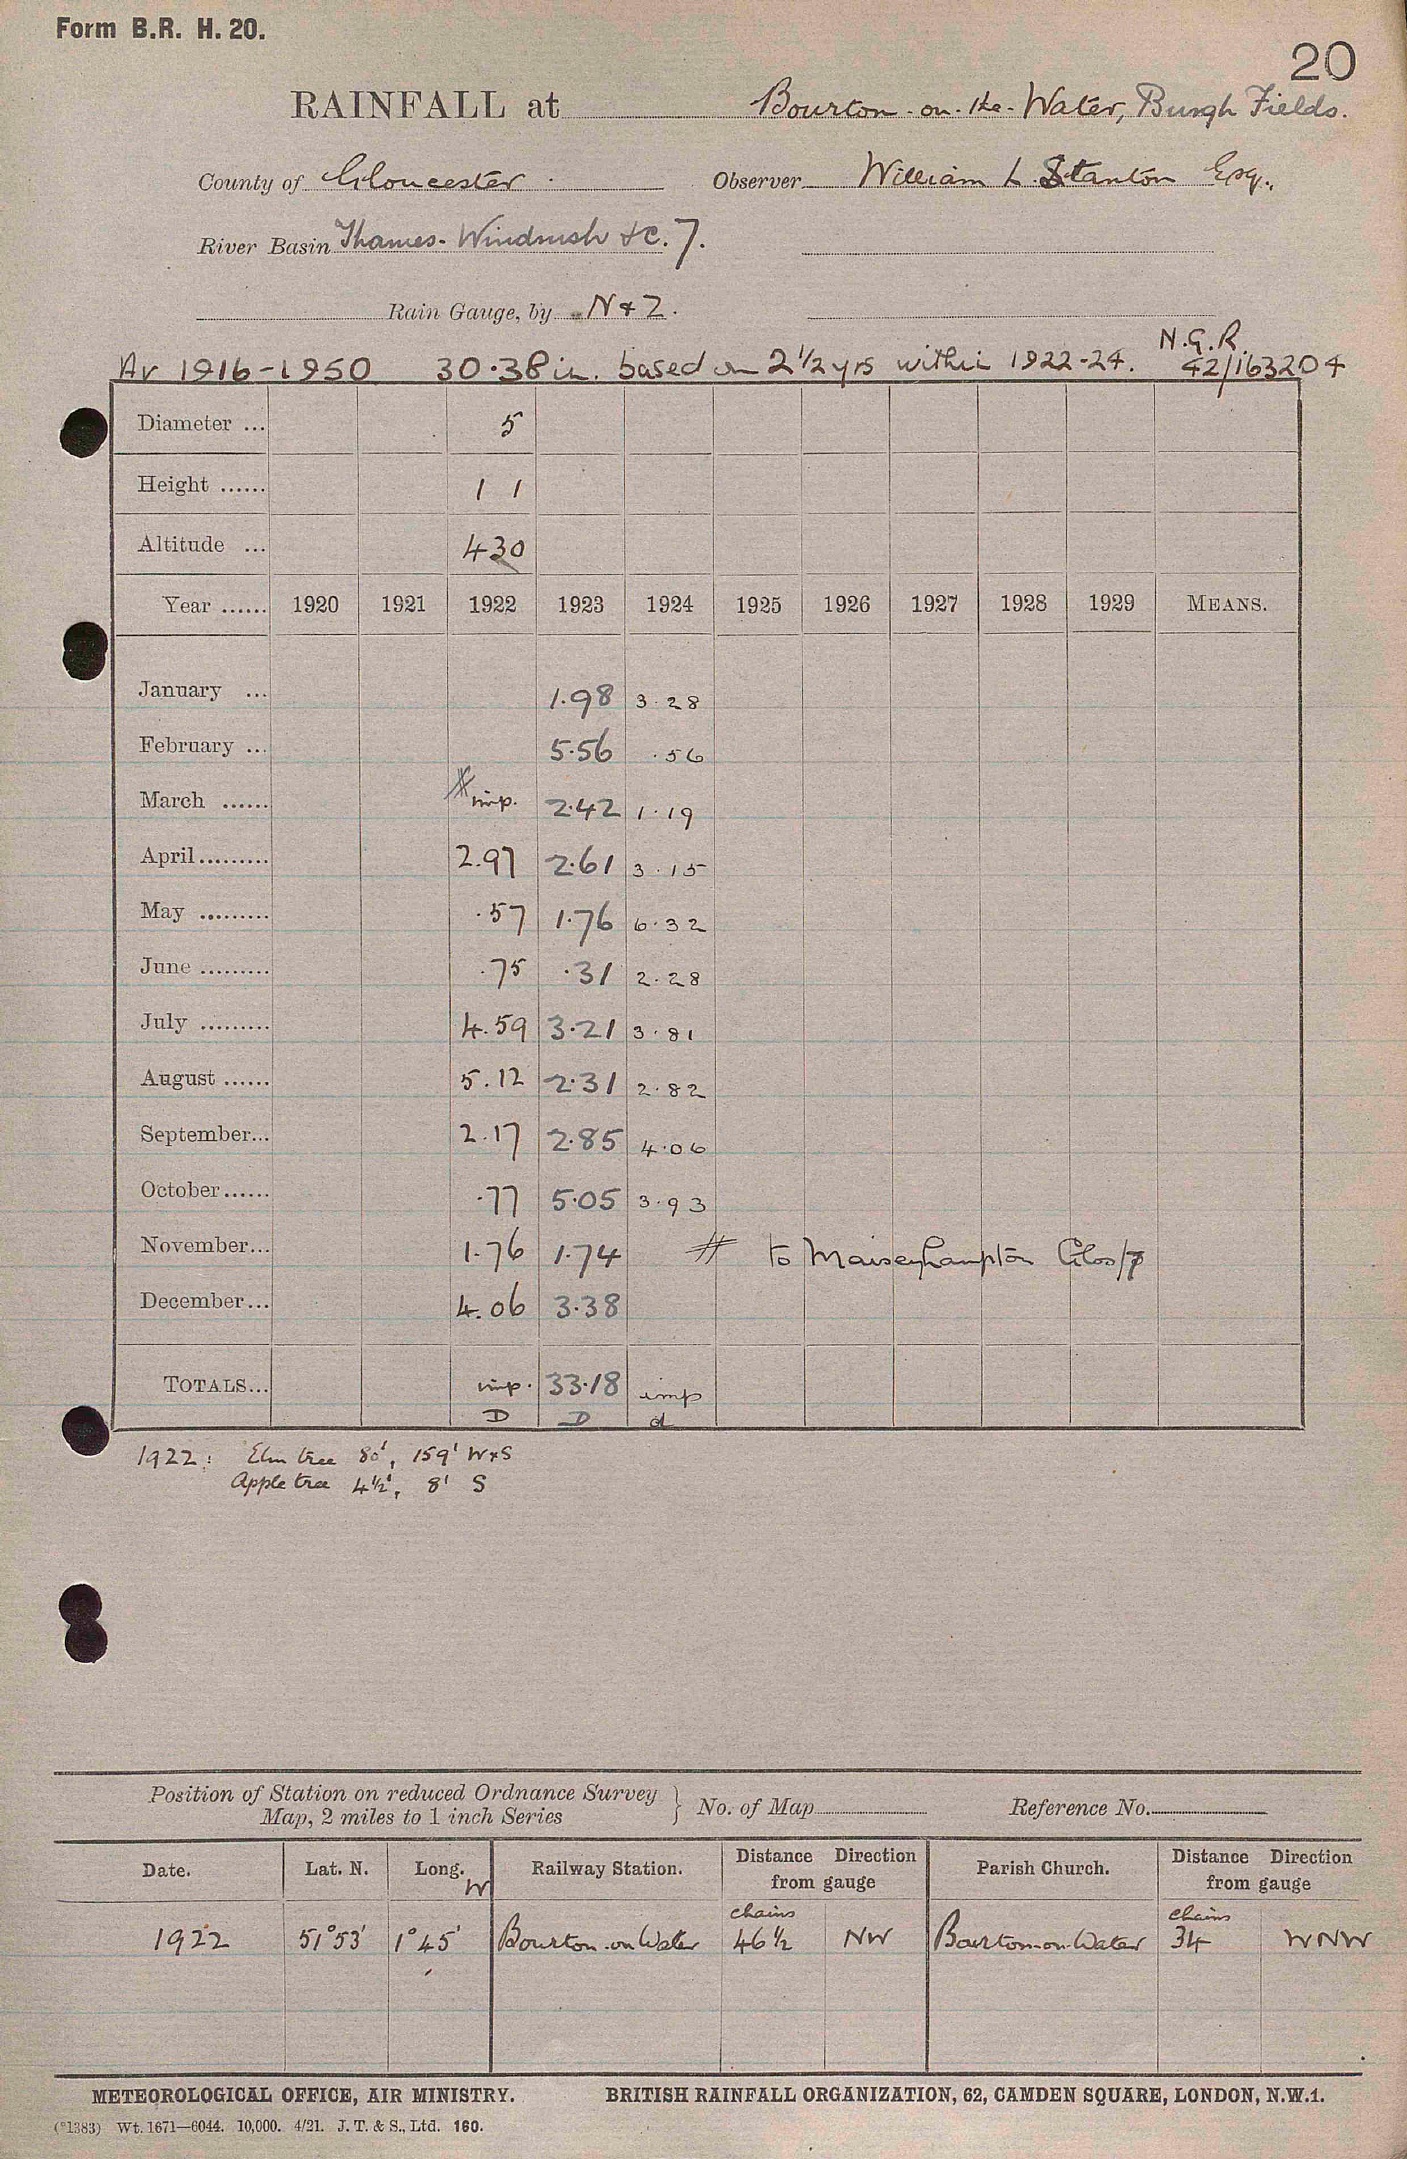 Form B.R. H. 20.
20
RAINFALL at Bourton-on-the-Water, Burgh Fields.
County of Gloucester. Observer William L. Stanton Esq.,
River Basin Thames-Windrush &c. 7.
Rain Gauge, by N & Z.
N.G.R.
Av 1916-1950 30.38 in. based on 2½ yrs within 1922-24. 42/163204
Diameter ... 5
Height ...... 1 1
Altitude ... 430
Year ...... 1920 1921 1922 1923 1924 1925 1926 1927 1928 1929 MEANS.
January ... 1.98 3.28
February ... 5.56 .56
March ...... imp. 2.42 1.19
April ......... 2.97 2.61 3.15
May ......... .57 1.76 6.32
June ......... .75 .31 2.28
July ......... 4.59 3.21 3.81
August ...... 5.12 2.31 2.82
September... 2.17 2.85 4.06
October...... .77 5.05 3.93
November... 1.76 1.74 # to Maiseyhampton Glos/7
December... 4.06 3.38
TOTALS... imp. 33.18 imp
D D d
1922: Elm tree 80', 159' WxS
Apple tree 4½', 8' S
Position of Station on reduced Ordnance Survey
Map, 2 miles to 1 inch Series } No. of Map Reference No.
Date. Lat. N. Long. W Railway Station. Distance Direction from gauge Parish Church. Distance Direction from gauge
chains chains
1922 51°53' 1°45' Bourton-on-Water 46½ NW Bourton-on-Water 34 WNW
METEOROLOGICAL OFFICE, AIR MINISTRY. BRITISH RAINFALL ORGANIZATION, 62, CAMDEN SQUARE, LONDON, N.W.1.
(*1383) Wt. 1671—6044. 10,000. 4/21. J. T. & S., Ltd. 160.